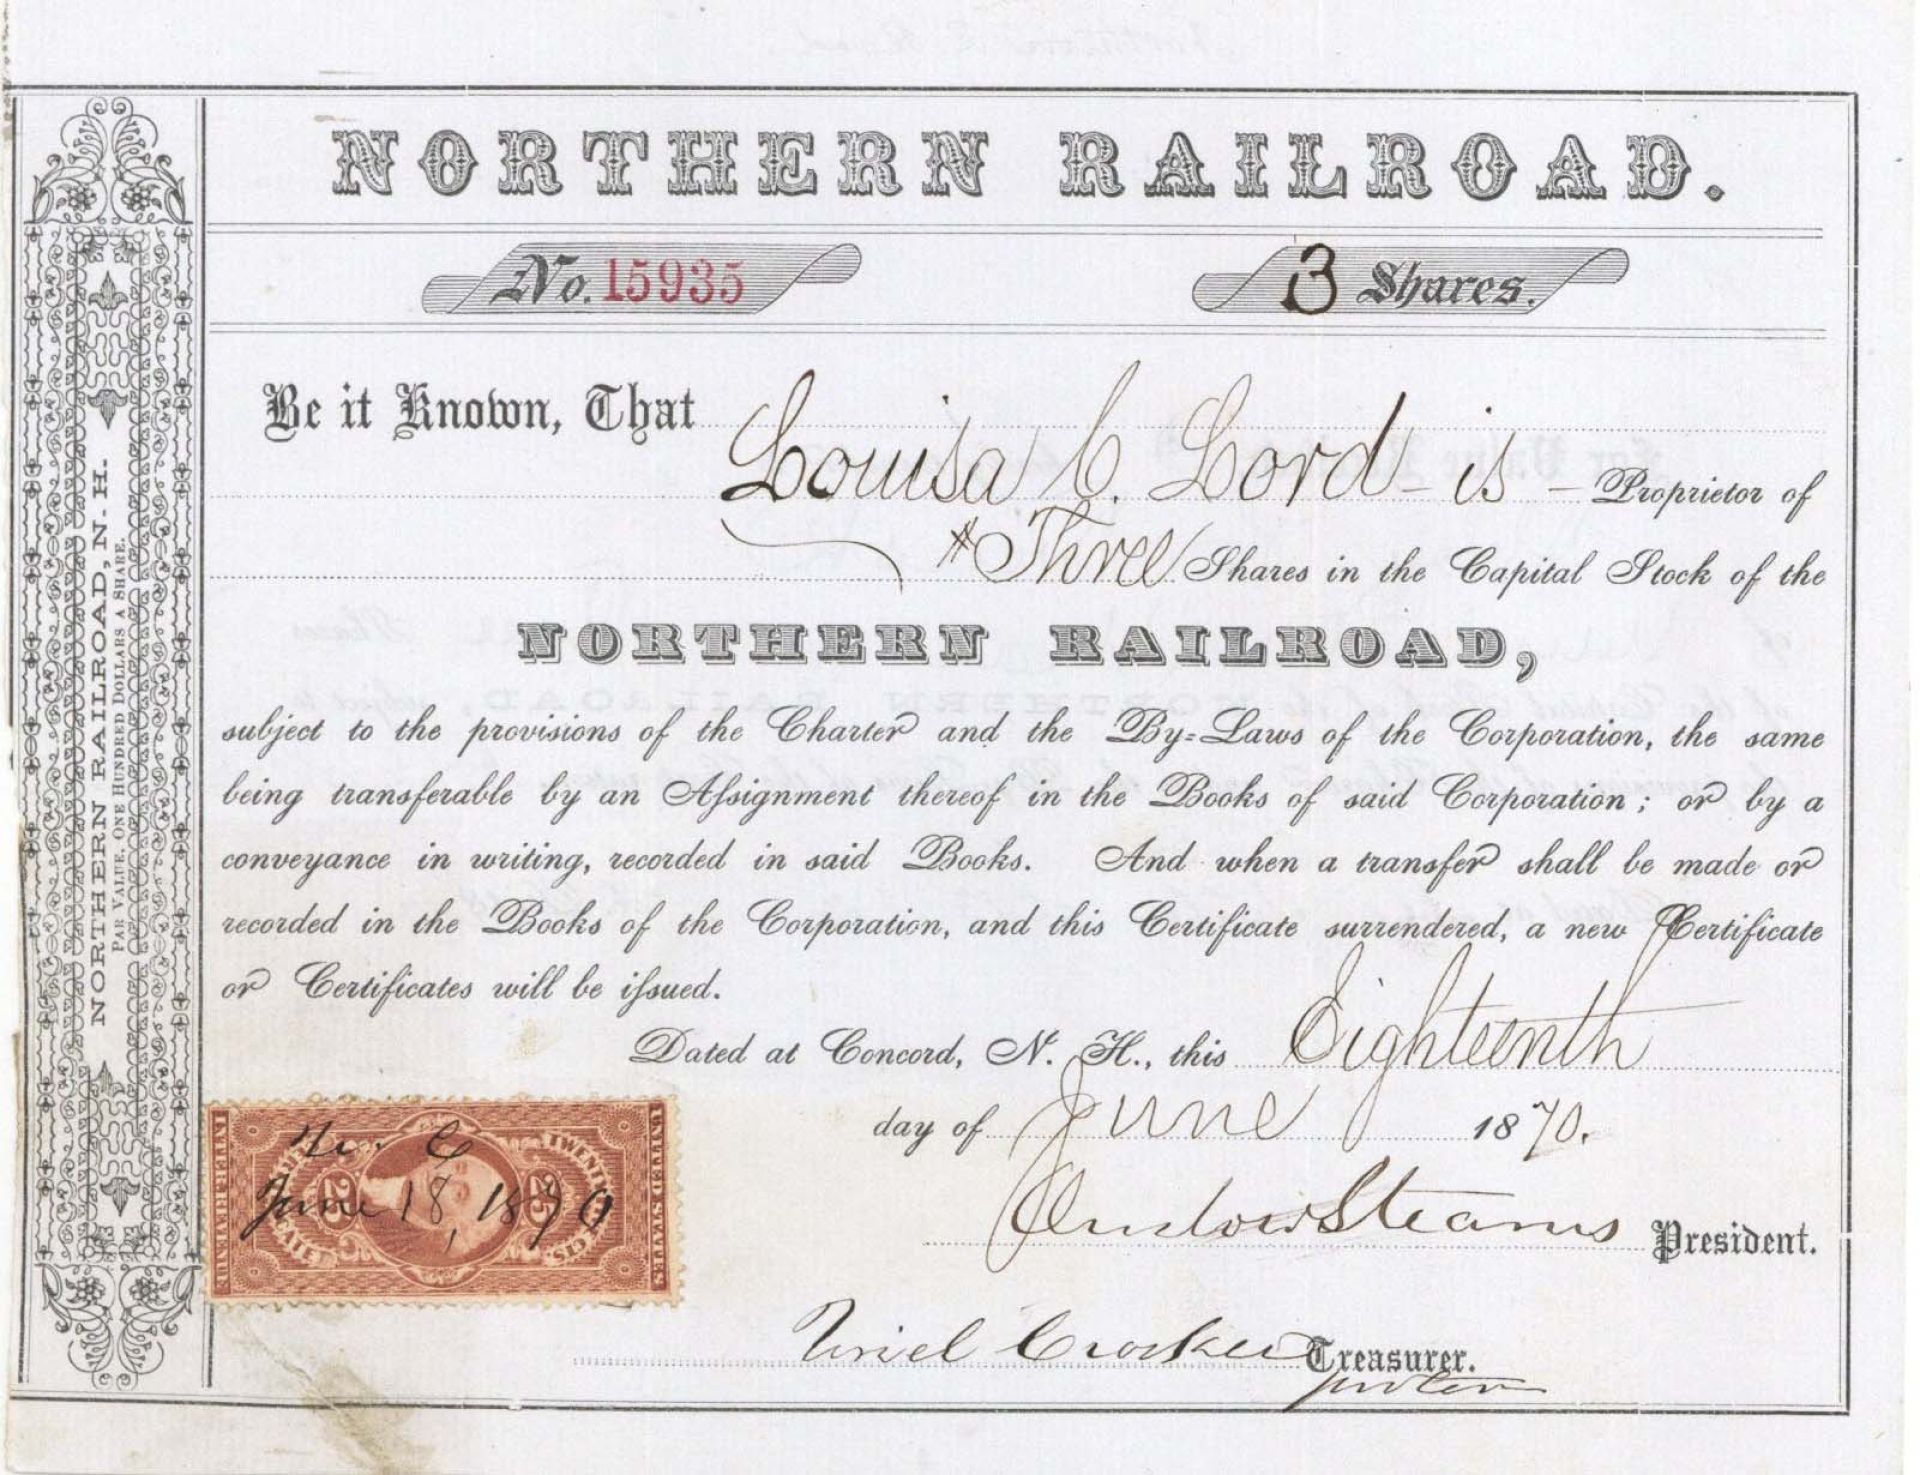 NORTHERN RAILROAD.
No. 15935
3 Shares.
Be it Known, That
Louisa C. Lord - is - Proprietor of
Three Shares in the Capital Stock of the
NORTHERN RAILROAD,
subject to the provisions of the Charter and the By-Laws of the Corporation, the same
being transferable by an Assignment thereof in the Books of said Corporation; or by a
conveyance in writing, recorded in said Books. And when a transfer shall be made or
recorded in the Books of the Corporation, and this Certificate surrendered, a new Certificate
or Certificates will be issued.
Dated at Concord, N. H., this Eighteenth
day of June 1870.
Onslow Stearns President.
Uriel Crocker Treasurer.
pro tem
NORTHERN RAILROAD, N. H.
PAR VALUE, ONE HUNDRED DOLLARS A SHARE.
INTER. REVENUE
UNITED STATES
TWENTY FIVE CTS.
25
25
U. C
June 18, 1870